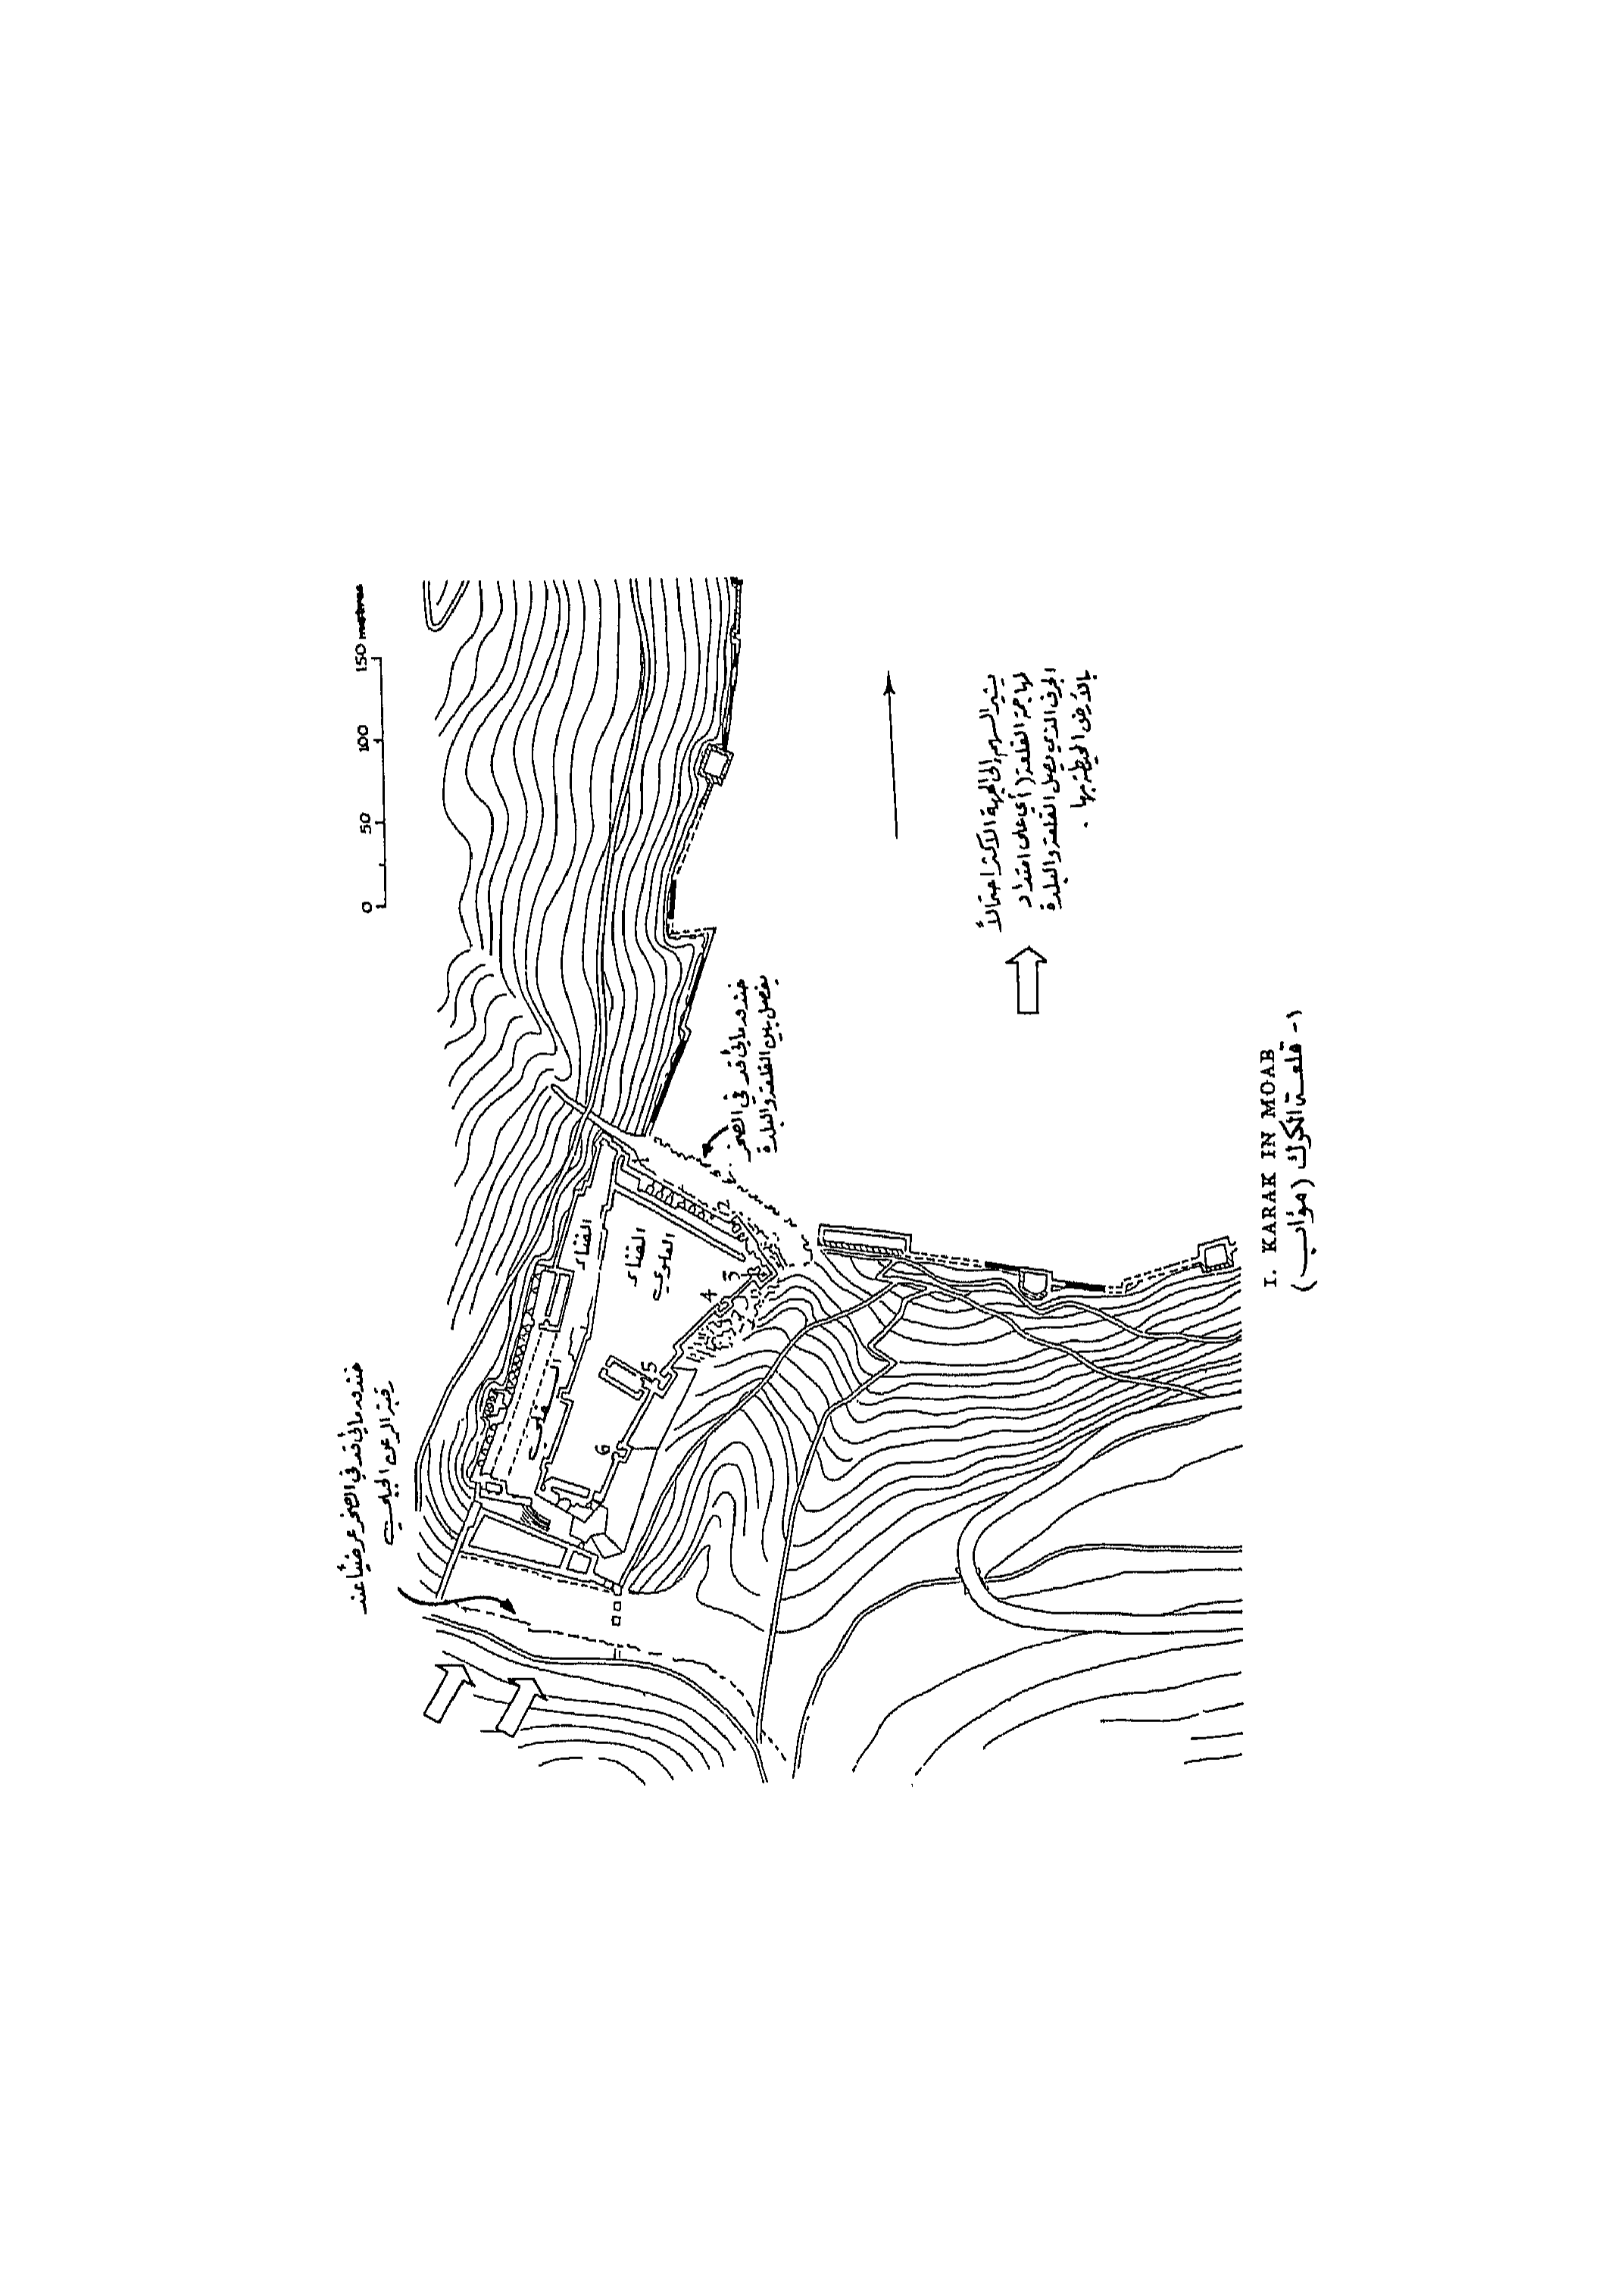 خندق مائي قد في الصخر عرضيًا عند
رقبة الرعن الجبلي
0 50 100 150 metres
الفناء
السفلي
الفناء
العلوي
1
2
3
4
5
6
خندق مائي قد في الصخر
يفصل بين القلعة والبلدة
يشير السهم إلى الجهة الأكثر احتمالاً
لمهاجمة القلعة (أي على امتداد
الجرف الذي يصل القلعة والبلدة
بالأرض المحيطة بها.
I. KARAK IN MOAB
١- قلعة الكرك (مؤاب)